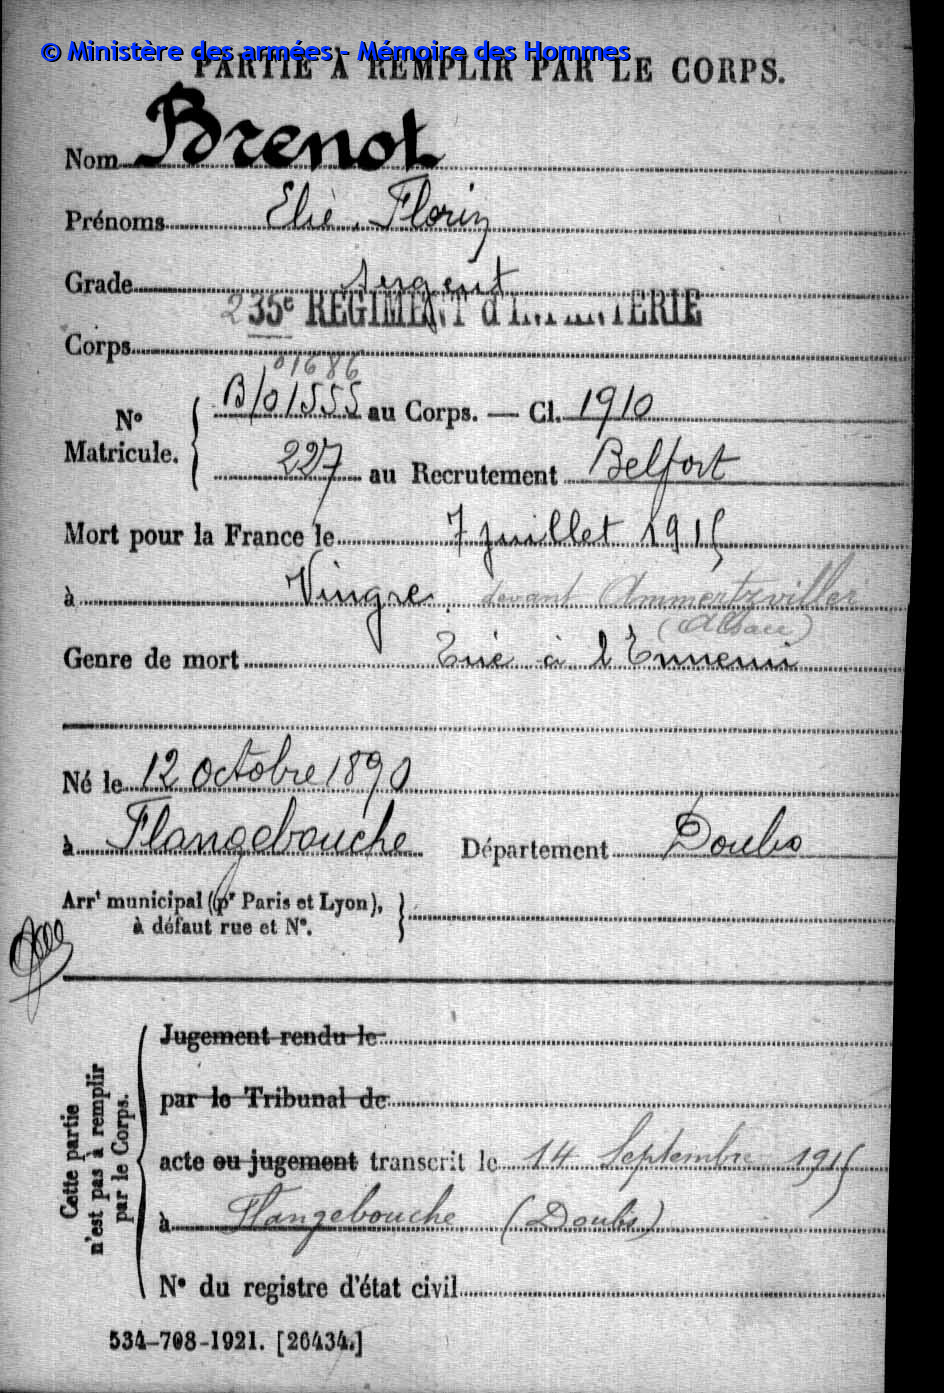 © Ministère des armées - Mémoire des Hommes
PARTIE À REMPLIR PAR LE CORPS.
Nom Brenot
Prénoms Elie, Florin
Grade sergent
235e RÉGIMENT d'INFANTERIE
Corps
01686
No B/01555 au Corps. — Cl. 1910
Matricule. 227 au Recrutement Belfort
Mort pour la France le 7 juillet 1915
à Vingre. devant Ammertzviller
(Alsace)
Genre de mort Tué à l'Ennemi
Né le 12 octobre 1890
à Flangebouche Département Doubs
Arrt municipal (pr Paris et Lyon),
à défaut rue et No.
Cette partie
n'est pas à remplir
par le Corps.
Jugement rendu le
par le Tribunal de
acte ou jugement transcrit le 14 Septembre 1915
à Flangebouche (Doubs)
No du registre d'état civil
534-708-1921. [26434.]